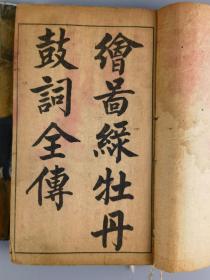 繪啚綠牡丹
鼓詞全傳